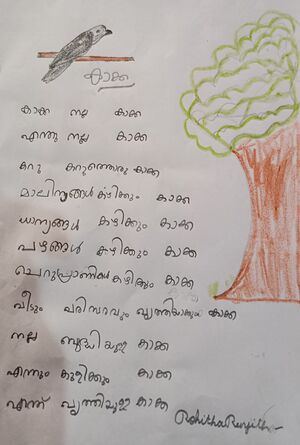 കാക്ക
കാക്ക നല്ല കാക്ക
എന്തു നല്ല കാക്ക
കറു കറുത്തൊരു കാക്ക
മാലിന്യങ്ങൾ കഴിക്കും കാക്ക
ധാന്യങ്ങൾ കഴിക്കും കാക്ക
പഴങ്ങൾ കഴിക്കും കാക്ക
ചെറുപ്രാണികൾ കഴിക്കും കാക്ക
വീടും പരിസരവും വൃത്തിയാക്കും കാക്ക
നല്ല ബുദ്ധിയുള്ള കാക്ക
എന്നും കുളിക്കും കാക്ക
എന്ത് വൃത്തിയുള്ള കാക്ക
Rohitha Renjith